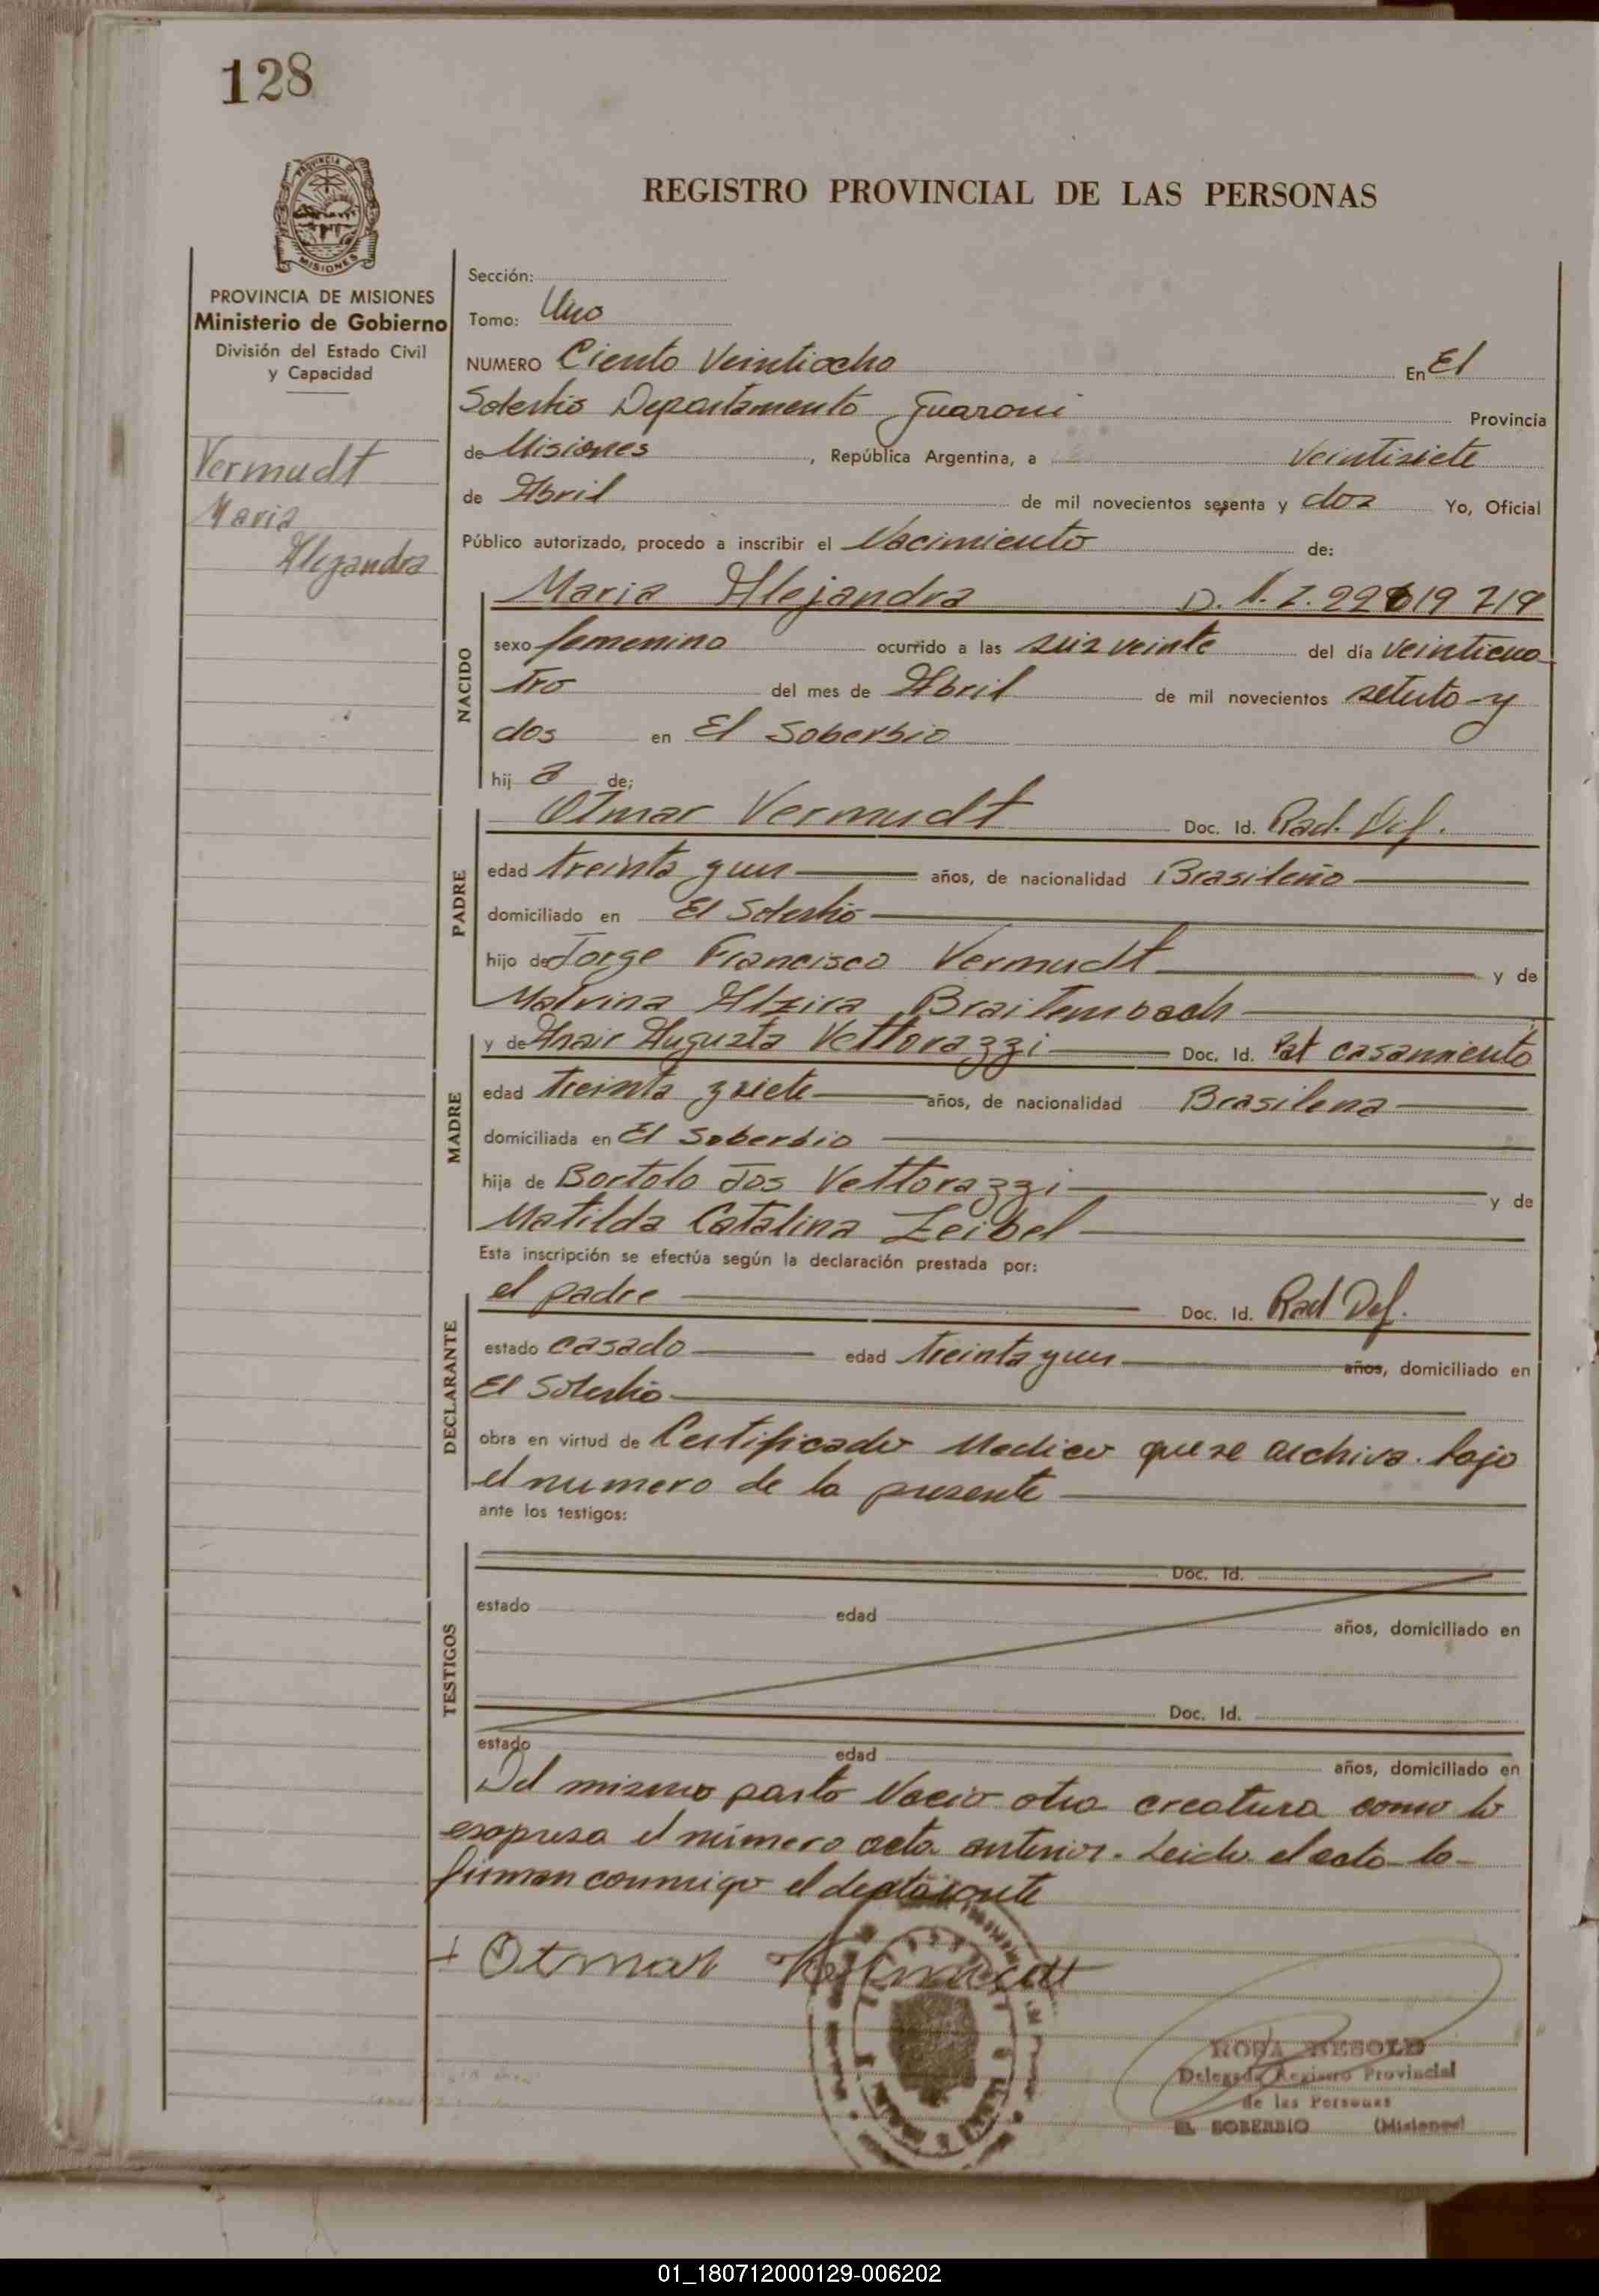 128
PROVINCIA DE MISIONES
REGISTRO PROVINCIAL DE LAS PERSONAS
PROVINCIA DE MISIONES
Ministerio de Gobierno
División del Estado Civil
y Capacidad
Vermudt
Maria
Alejandra
Sección:
Tomo: Uno
NUMERO Ciento Veintiocho En El
Soberbio Departamento Guarani Provincia
de Misiones , República Argentina, a Veintisiete
de Abril de mil novecientos sesenta y dos Yo, Oficial
Público autorizado, procedo a inscribir el Nacimiento de:
NACIDO
Maria Alejandra
sexo femenino ocurrido a las seis veinte del día veinticua
tro del mes de Abril de mil novecientos setenta y
dos en El Soberbio
hij a de;
PADRE
Otmar Vermudt Doc. Id. Rad. Def.
edad treinta y un años, de nacionalidad Brasileño
domiciliado en El Soberbio
hijo de Jorge Francisco Vermudt y de
Malvina Alzira Braitembach
MADRE
y de Anair Augusta Vettorazzi Doc. Id. casamiento
edad treinta y siete años, de nacionalidad Brasilena
domiciliada en El Soberbio
hija de Bortolo Jos Vettorazzi y de
Matilda Catalina Zeibel
Esta inscripción se efectúa según la declaración prestada por:
DECLARANTE
el padre Doc. Id. Rad Def.
estado casado edad treinta y un años, domiciliado en
El Soberbio
obra en virtud de Certificado Medico que se archiva bajo
el numero de la presente
ante los testigos:
TESTIGOS
Doc. Id.
estado edad años, domiciliado en
Doc. Id.
estado edad años, domiciliado en
Del mismo parto Nacio otra creatura como lo
esapresa el número acta anterior. Leida el acta la
firman conmigo el declarante
Otmar Vermudt
ROSA BESOLD
Delegada Registro Provincial
de las Personas
EL SOBERBIO (Misiones)
01_180712000129-006202